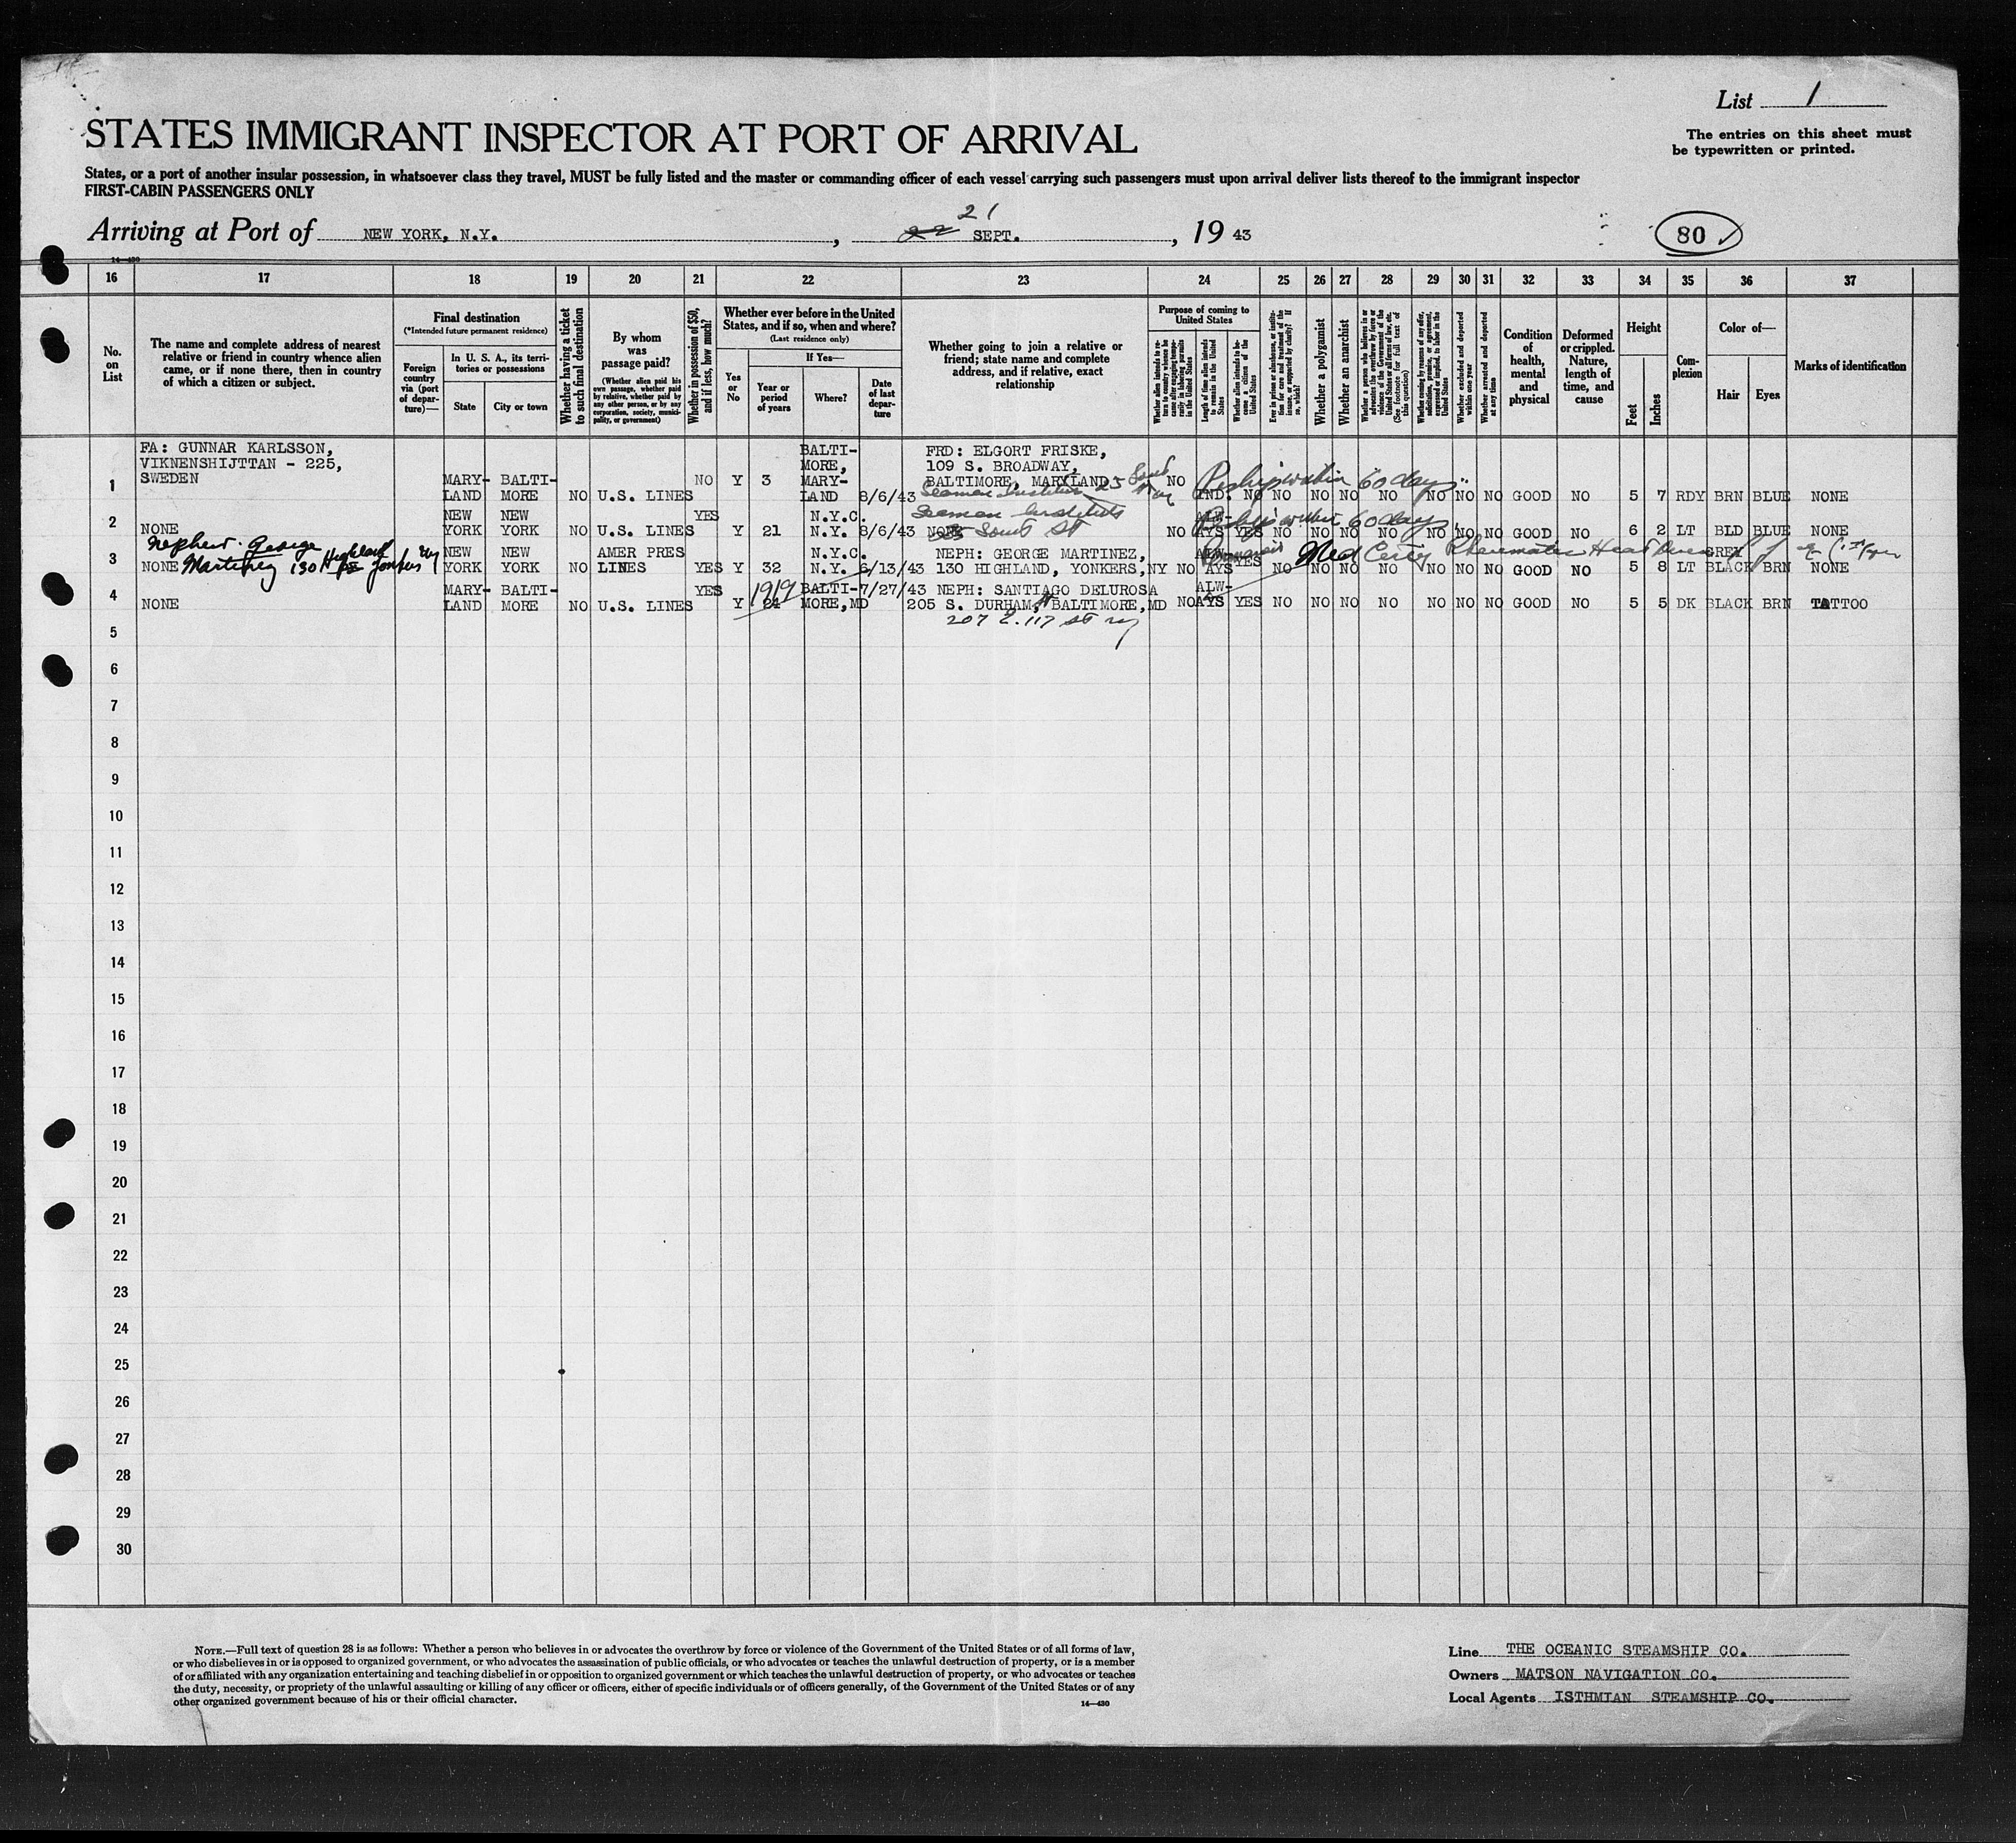 List 1
STATES IMMIGRANT INSPECTOR AT PORT OF ARRIVAL
The entries on this sheet must
be typewritten or printed.
States, or a port of another insular possession, in whatsoever class they travel, MUST be fully listed and the master or commanding officer of each vessel carrying such passengers must upon arrival deliver lists thereof to the immigrant inspector
FIRST-CABIN PASSENGERS ONLY
21
Arriving at Port of NEW YORK, N.Y. , 22 SEPT. , 19 43
80
14—430
16 17 18 19 20 21 22 23 24 25 26 27 28 29 30 31 32 33 34 35 36 37
No. on List
The name and complete address of nearest relative or friend in country whence alien came, or if none there, then in country of which a citizen or subject.
Final destination
(*Intended future permanent residence)
Foreign country via (port of departure)—
In U. S. A., its territories or possessions
State
City or town
Whether having a ticket to such final destination
By whom was passage paid?
(Whether alien paid his own passage, whether paid by relative, whether paid by any other person, or by any corporation, society, municipality, or government)
Whether in possession of $50, and if less, how much?
Whether ever before in the United States, and if so, when and where?
(Last residence only)
Yes or No
If Yes—
Year or period of years
Where?
Date of last departure
Whether going to join a relative or friend; state name and complete address, and if relative, exact relationship
Purpose of coming to United States
Length of time alien intends to remain in the United States
Whether alien intends to become a citizen of the United States
Whether a polygamist
Whether an anarchist
(See footnote for full text of this question)
Whether excluded and deported within one year
Whether arrested and deported at any time
Condition of health, mental and physical
Deformed or crippled. Nature, length of time, and cause
Height
Feet
Inches
Complexion
Color of—
Hair
Eyes
Marks of identification
1 FA: GUNNAR KARLSSON, VIKNENSHIJTTAN - 225, SWEDEN MARY-LAND BALTI-MORE NO U.S. LINES NO Y 3 BALTI-MORE, MARY-LAND 8/6/43 FRD: ELGORT FRISKE, 109 S. BROADWAY, BALTIMORE, MARYLAND Seamen Institute 25 South St NY NO IND. NO NO NO NO NO NO NO NO GOOD NO 5 7 RDY BRN BLUE NONE
Reship within 60 days
2 NONE NEW YORK NEW YORK NO U.S. LINES YES Y 21 N.Y.C. N.Y. 8/6/43 NONE Seamen Institute 25 South St NO ALW-AYS YES NO NO NO NO NO NO NO GOOD NO 6 2 LT BLD BLUE NONE
Reship within 60 days
3 NONE Nephew. George Martinez 130 Highland Yonkers NY NEW YORK NEW YORK NO AMER PRES LINES YES Y 32 N.Y.C. N.Y. 6/13/43 NEPH: GEORGE MARTINEZ, 130 HIGHLAND, YONKERS, NY NO ALW-AYS YES NO NO NO NO NO NO NO GOOD NO 5 8 LT GREY BLACK BRN NONE
Med Cert Rheumatic Heart
4 NONE MARY-LAND BALTI-MORE NO U.S. LINES YES Y 1919 24 BALTI-MORE, MD 7/27/43 NEPH: SANTIAGO DELUROSA 205 S. DURHAM, St BALTIMORE, MD NO ALW-AYS YES NO NO NO NO NO NO NO GOOD NO 5 5 DK BLACK BRN TATTOO
207 E. 117 St NY
5
6
7
8
9
10
11
12
13
14
15
16
17
18
19
20
21
22
23
24
25
26
27
28
29
30
NOTE.—Full text of question 28 is as follows: Whether a person who believes in or advocates the overthrow by force or violence of the Government of the United States or of all forms of law,
or who disbelieves in or is opposed to organized government, or who advocates the assassination of public officials, or who advocates or teaches the unlawful destruction of property, or is a member
of or affiliated with any organization entertaining and teaching disbelief in or opposition to organized government or which teaches the unlawful destruction of property, or who advocates or teaches
the duty, necessity, or propriety of the unlawful assaulting or killing of any officer or officers, either of specific individuals or of officers generally, of the Government of the United States or of any
other organized government because of his or their official character.
14—430
Line THE OCEANIC STEAMSHIP CO.
Owners MATSON NAVIGATION CO.
Local Agents ISTHMIAN STEAMSHIP CO.